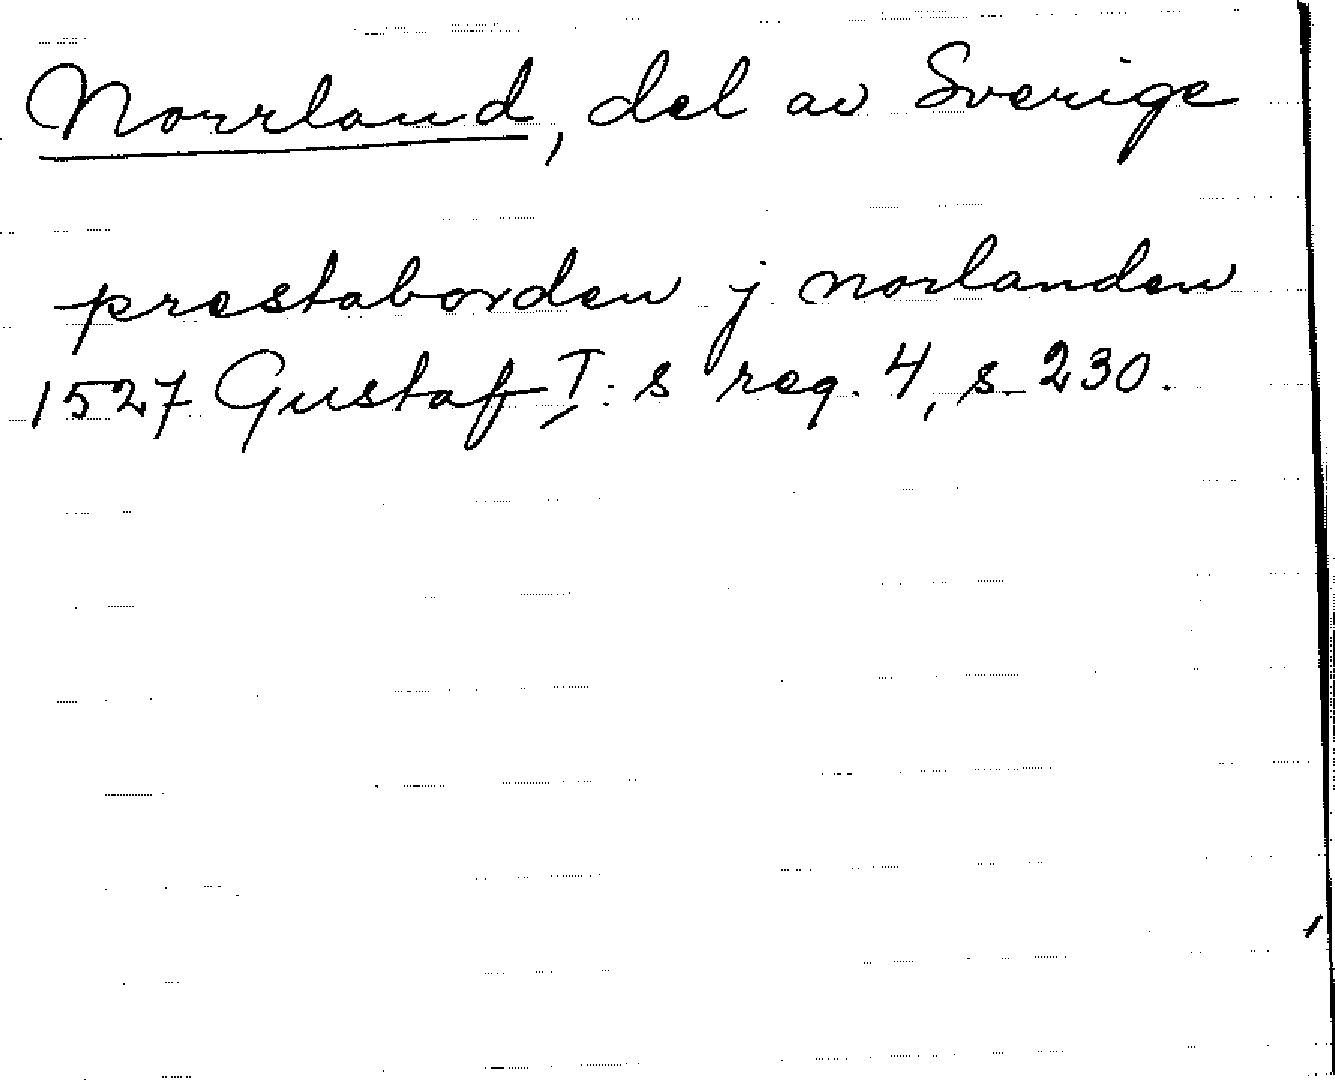 Norrland, del av Sverige
prestaborden j norlanden
1527 Gustaf I:s reg. 4, s. 230.